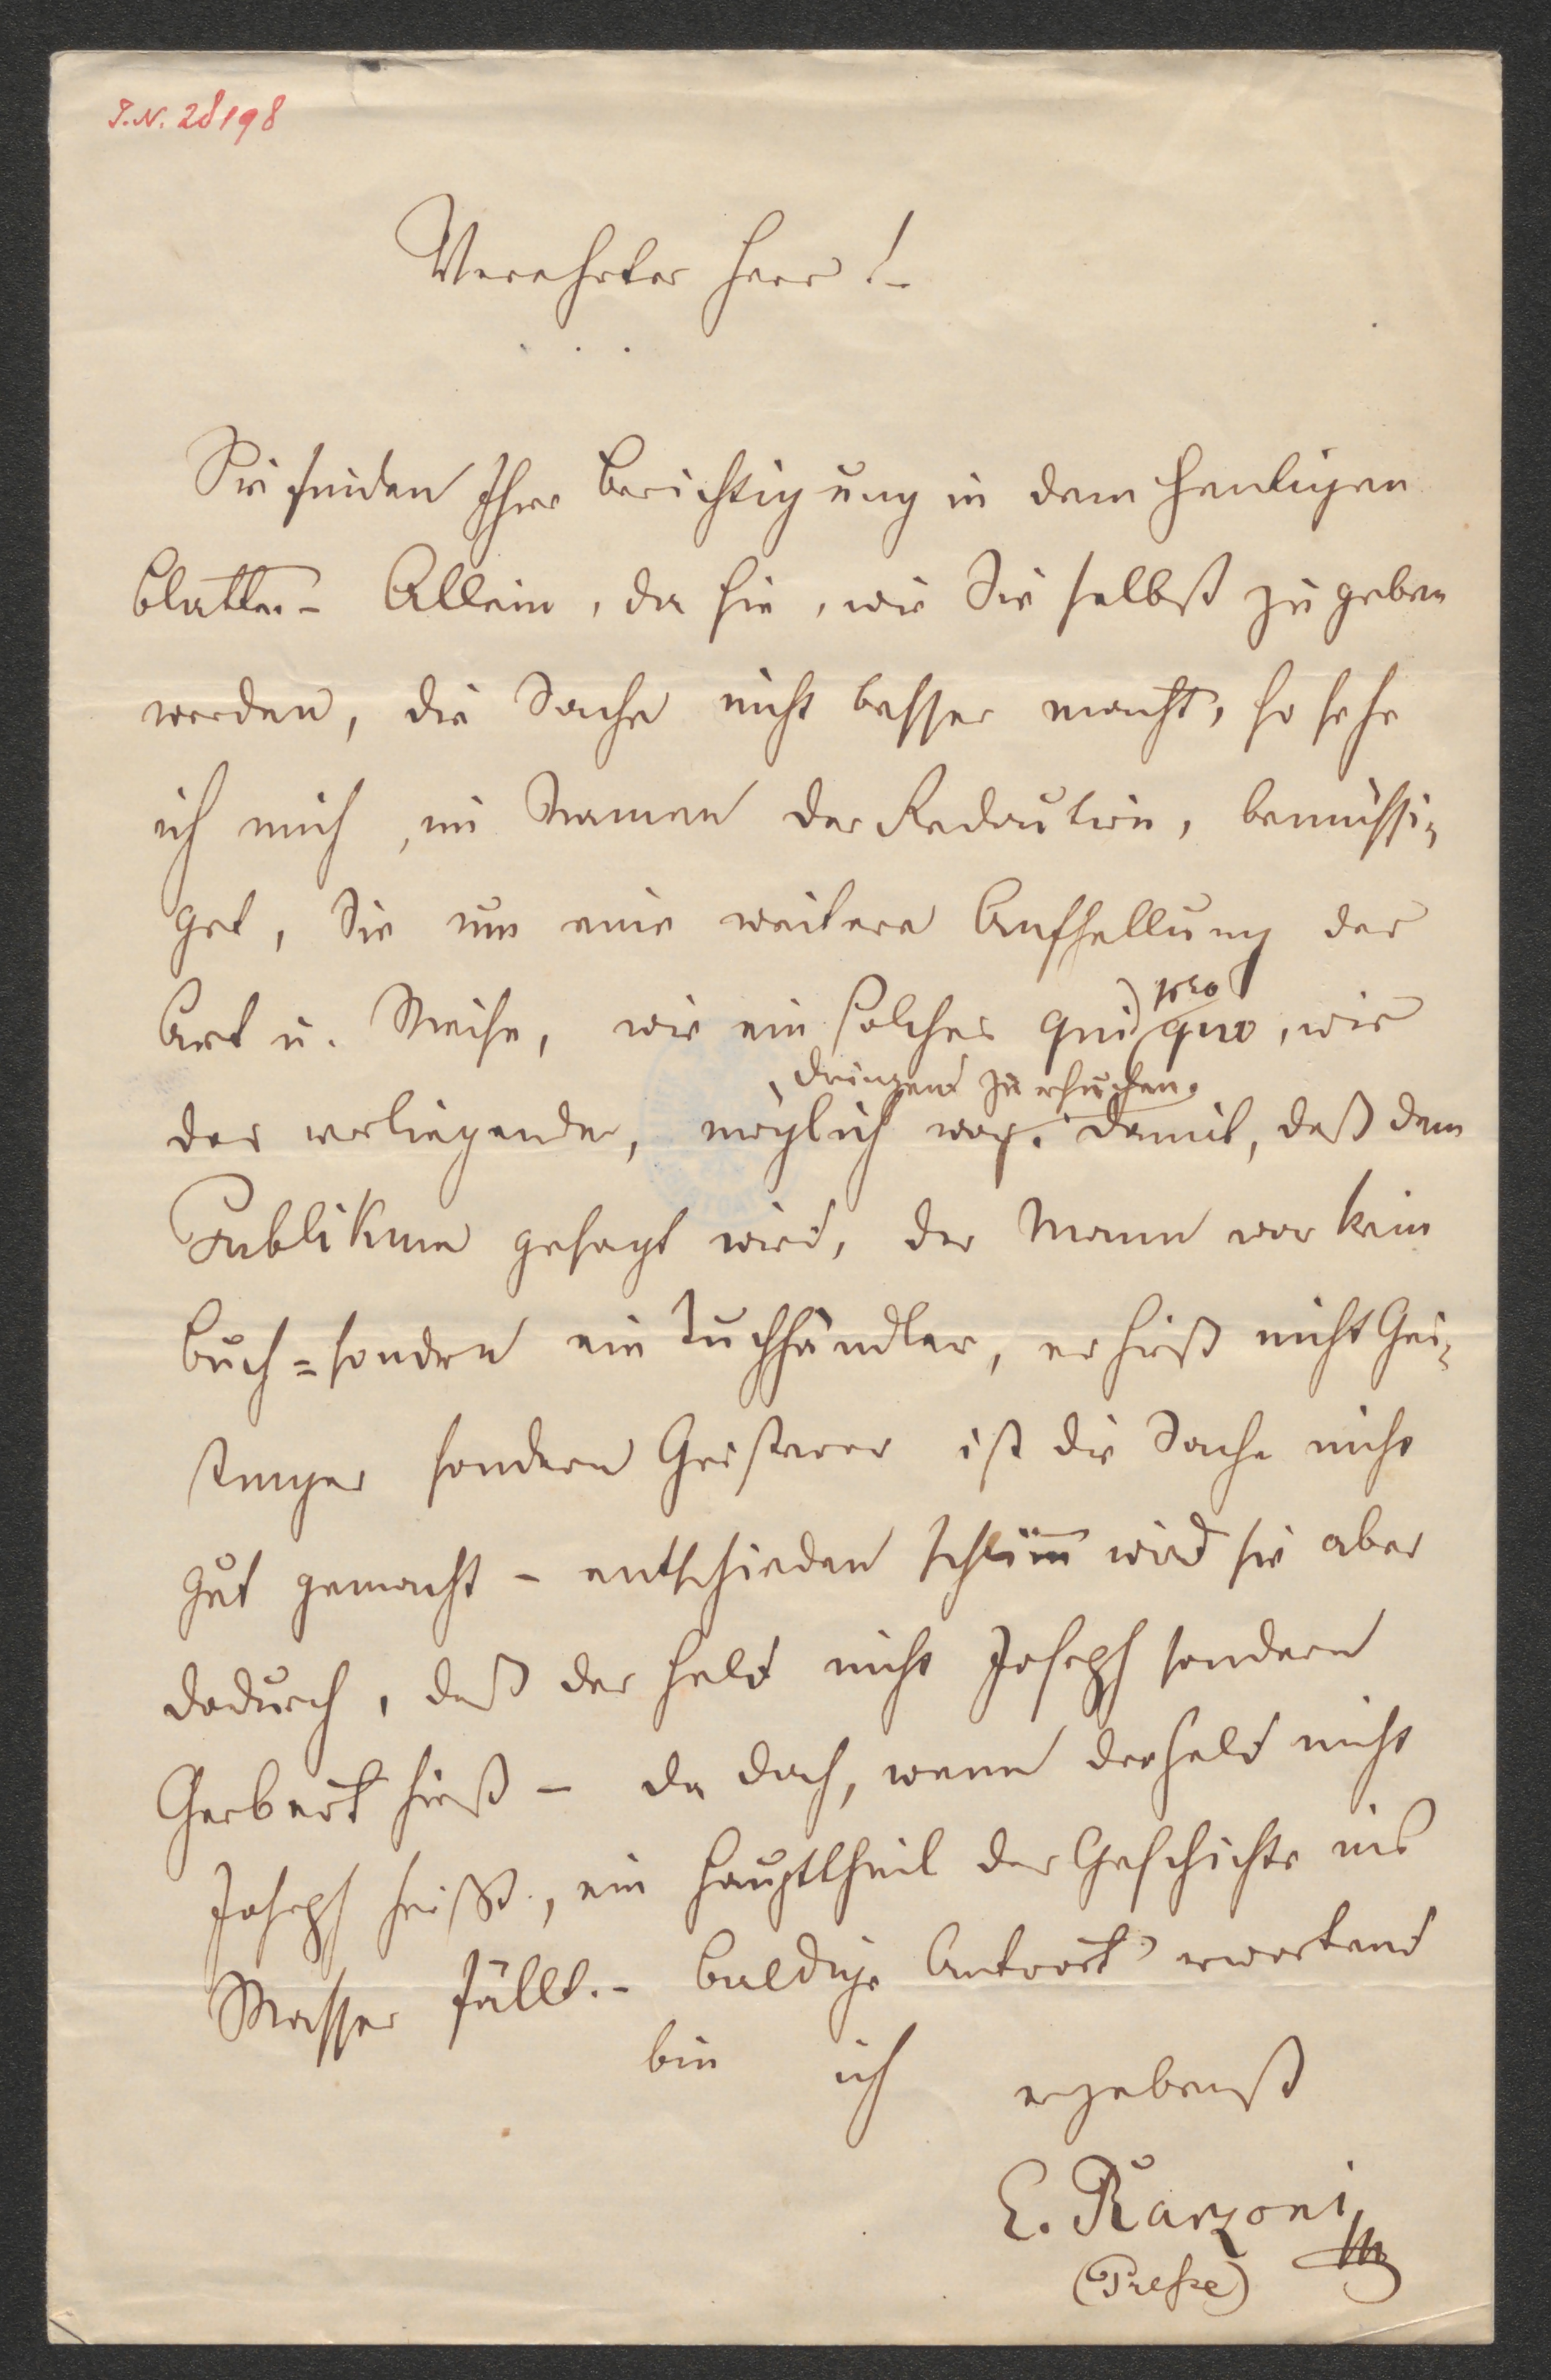 I.N. 28198
Verehrter Herr!-
Sie finden Ihre Berichtigung in dem heutigen
Blatte.- Allein, da sie, wie Sie selbst zugeben
werden, die Sache nicht besser macht, so sehe
ich mich, im Namen der Redaktion, bemüssi-
get, Sie um eine weitere Aufhellung der
Art u. Weise, wie ein solches quid pro quo, wie
das vorliegende, möglich war, dringend zu ersuchen. Damit, daß dem
Publikum gesagt wird, der Mann war kein
Buch- sondern ein Tuchhändler, er hieß nicht Gei-
stinger sondern Geistorer ist die Sache nicht
gut gemacht - entschieden schlimm wird sie aber
dadurch, daß der Held nicht Joseph sondern
Gerbert hieß - da doch, wenn der Held nicht
Joseph heißt, ein Haupttheil der Geschichte ins
Wasser fällt.- Baldige Antwort erwartend
bin ich ergebenst
E. Ranzoni
(Presse)